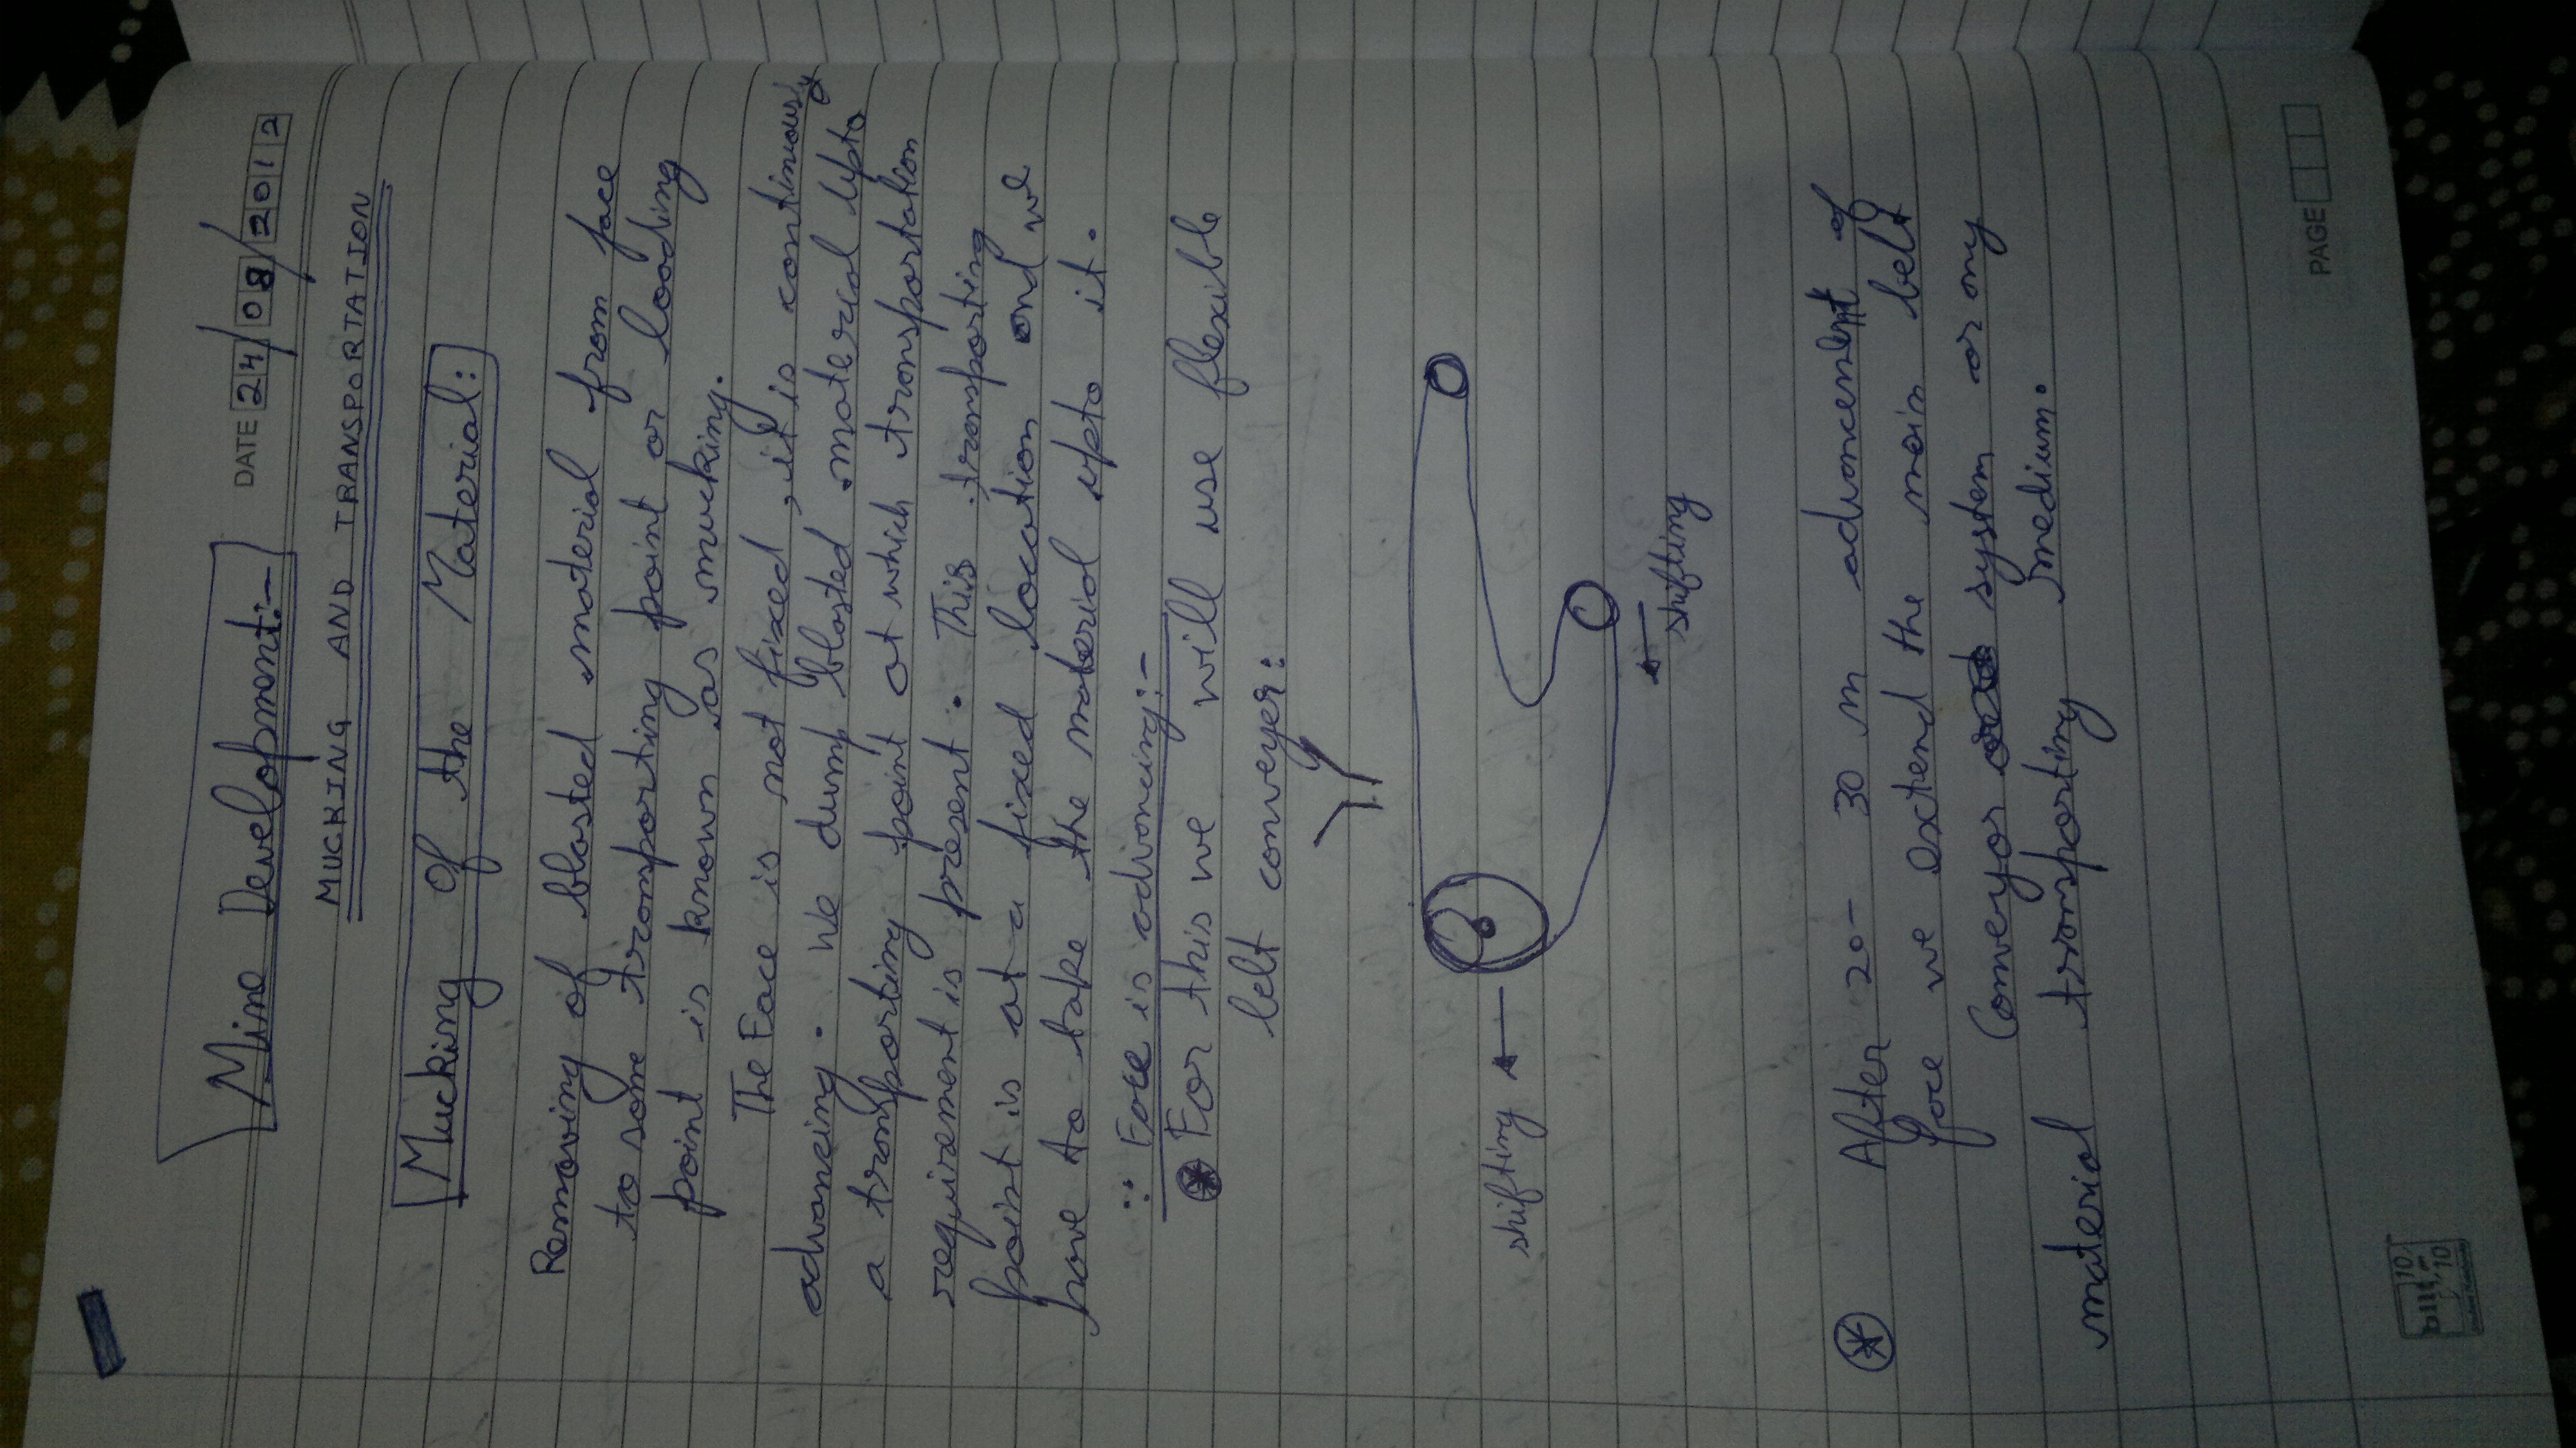 DATE 24/08/2012
Mine Development:-
MUCKING AND TRANSPORTATION
Mucking of the Material:
Removing of blasted material from face
to some transporting point or loading
point is known as mucking.
The Face is not fixed, it is continuously
advancing. We dump blasted material upto
a transporting point at which transportation
requirement is present. This transporting
point is at a fixed location and we
have to take the material upto it.
∵ Face is advancing:-
For this we will use flexible
belt conveyer:
shifting
shifting
After 20- 30 m advancement of
face we extend the main belt
Conveyor system or any
material transporting medium.
bilt
PAGE